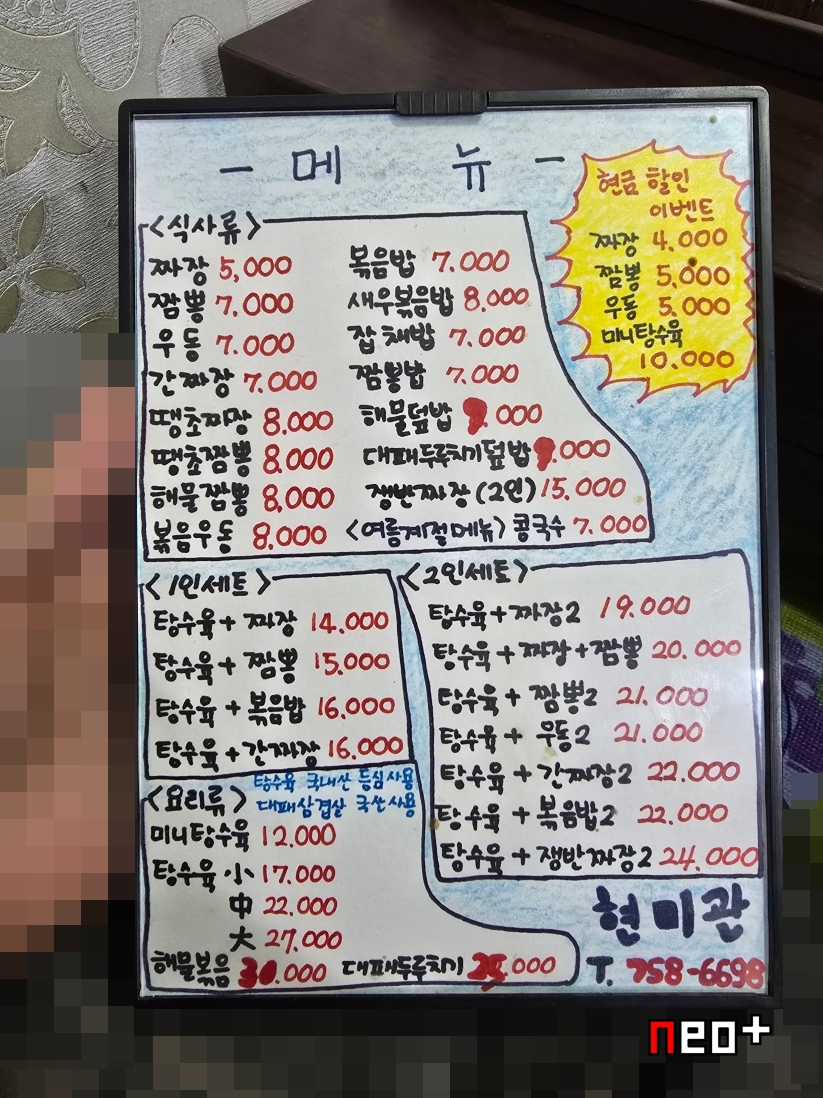 - 메 뉴 -
현금 할인
이벤트
짜장 4.000
짬뽕 5,000
우동 5.000
미니탕수육
10.000
<식사류>
짜장 5,000
짬뽕 7.000
우동 7.000
간짜장 7.000
땡초짜장 8.000
땡초짬뽕 8.000
해물짬뽕 8.000
볶음우동 8.000
볶음밥 7.000
새우볶음밥 8.000
잡채밥 7.000
짬뽕밥 7.000
해물덮밥 9.000
대패두루치기덮밥 9.000
쟁반짜장(2인) 15.000
<여름계절메뉴> 콩국수 7.000
<1인세트>
탕수육+짜장 14.000
탕수육+짬뽕 15.000
탕수육+볶음밥 16.000
탕수육+간짜장 16.000
<2인세트>
탕수육+짜장2 19.000
탕수육+짜장+짬뽕 20.000
탕수육+짬뽕2 21.000
탕수육+우동2 21.000
탕수육+간짜장2 22.000
탕수육+볶음밥2 22.000
탕수육+쟁반짜장2 24.000
탕수육 국내산 등심사용
대패삼겹살 국산사용
<요리류>
미니탕수육 12.000
탕수육 小 17.000
中 22.000
大 27.000
해물볶음 30.000
대패두루치기 .000
현미관
T. 758-6698
neo+